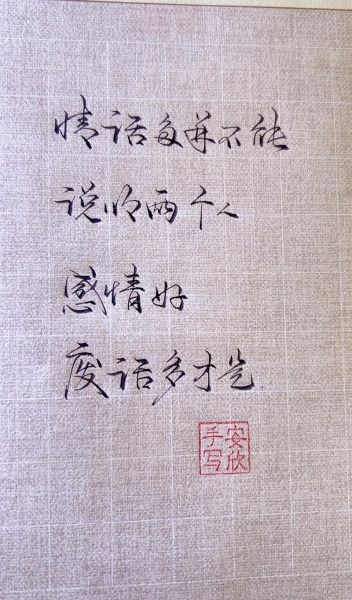 情话多并不能
说明两个人
感情好
废话多才是
安欣
手写